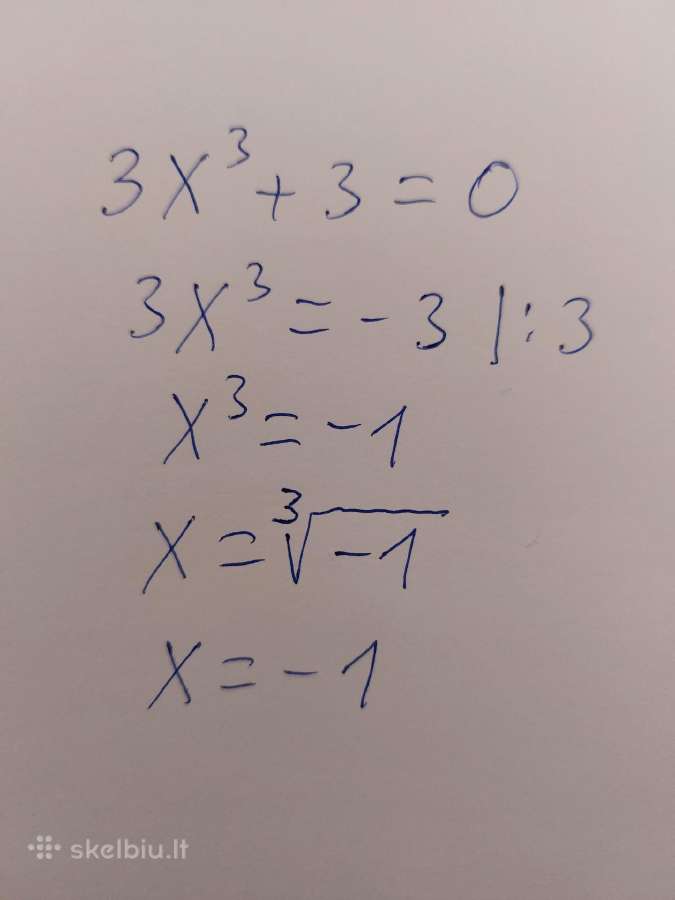 3x³ + 3 = 0
3x³ = -3 |:3
x³ = -1
x = ∛-1
x = -1
skelbiu.lt